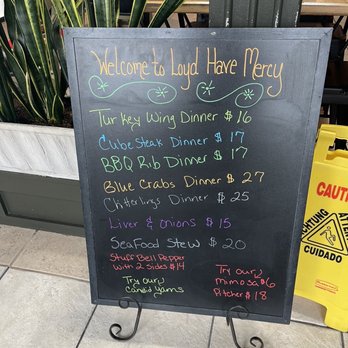 Welcome to Loyd Have Mercy
Turkey Wing Dinner $16
Cube Steak Dinner $17
BBQ Rib Dinner $17
Blue Crabs Dinner $27
Chitterlings Dinner $25
Liver & Onions $15
Seafood Stew $20
Stuff Bell Pepper
with 2 Sides $14
Try our
Candid Yams
Try our
mimosa $6
Pitcher $18
CAUT
ACHTUNG
ATTEN
CUIDADO